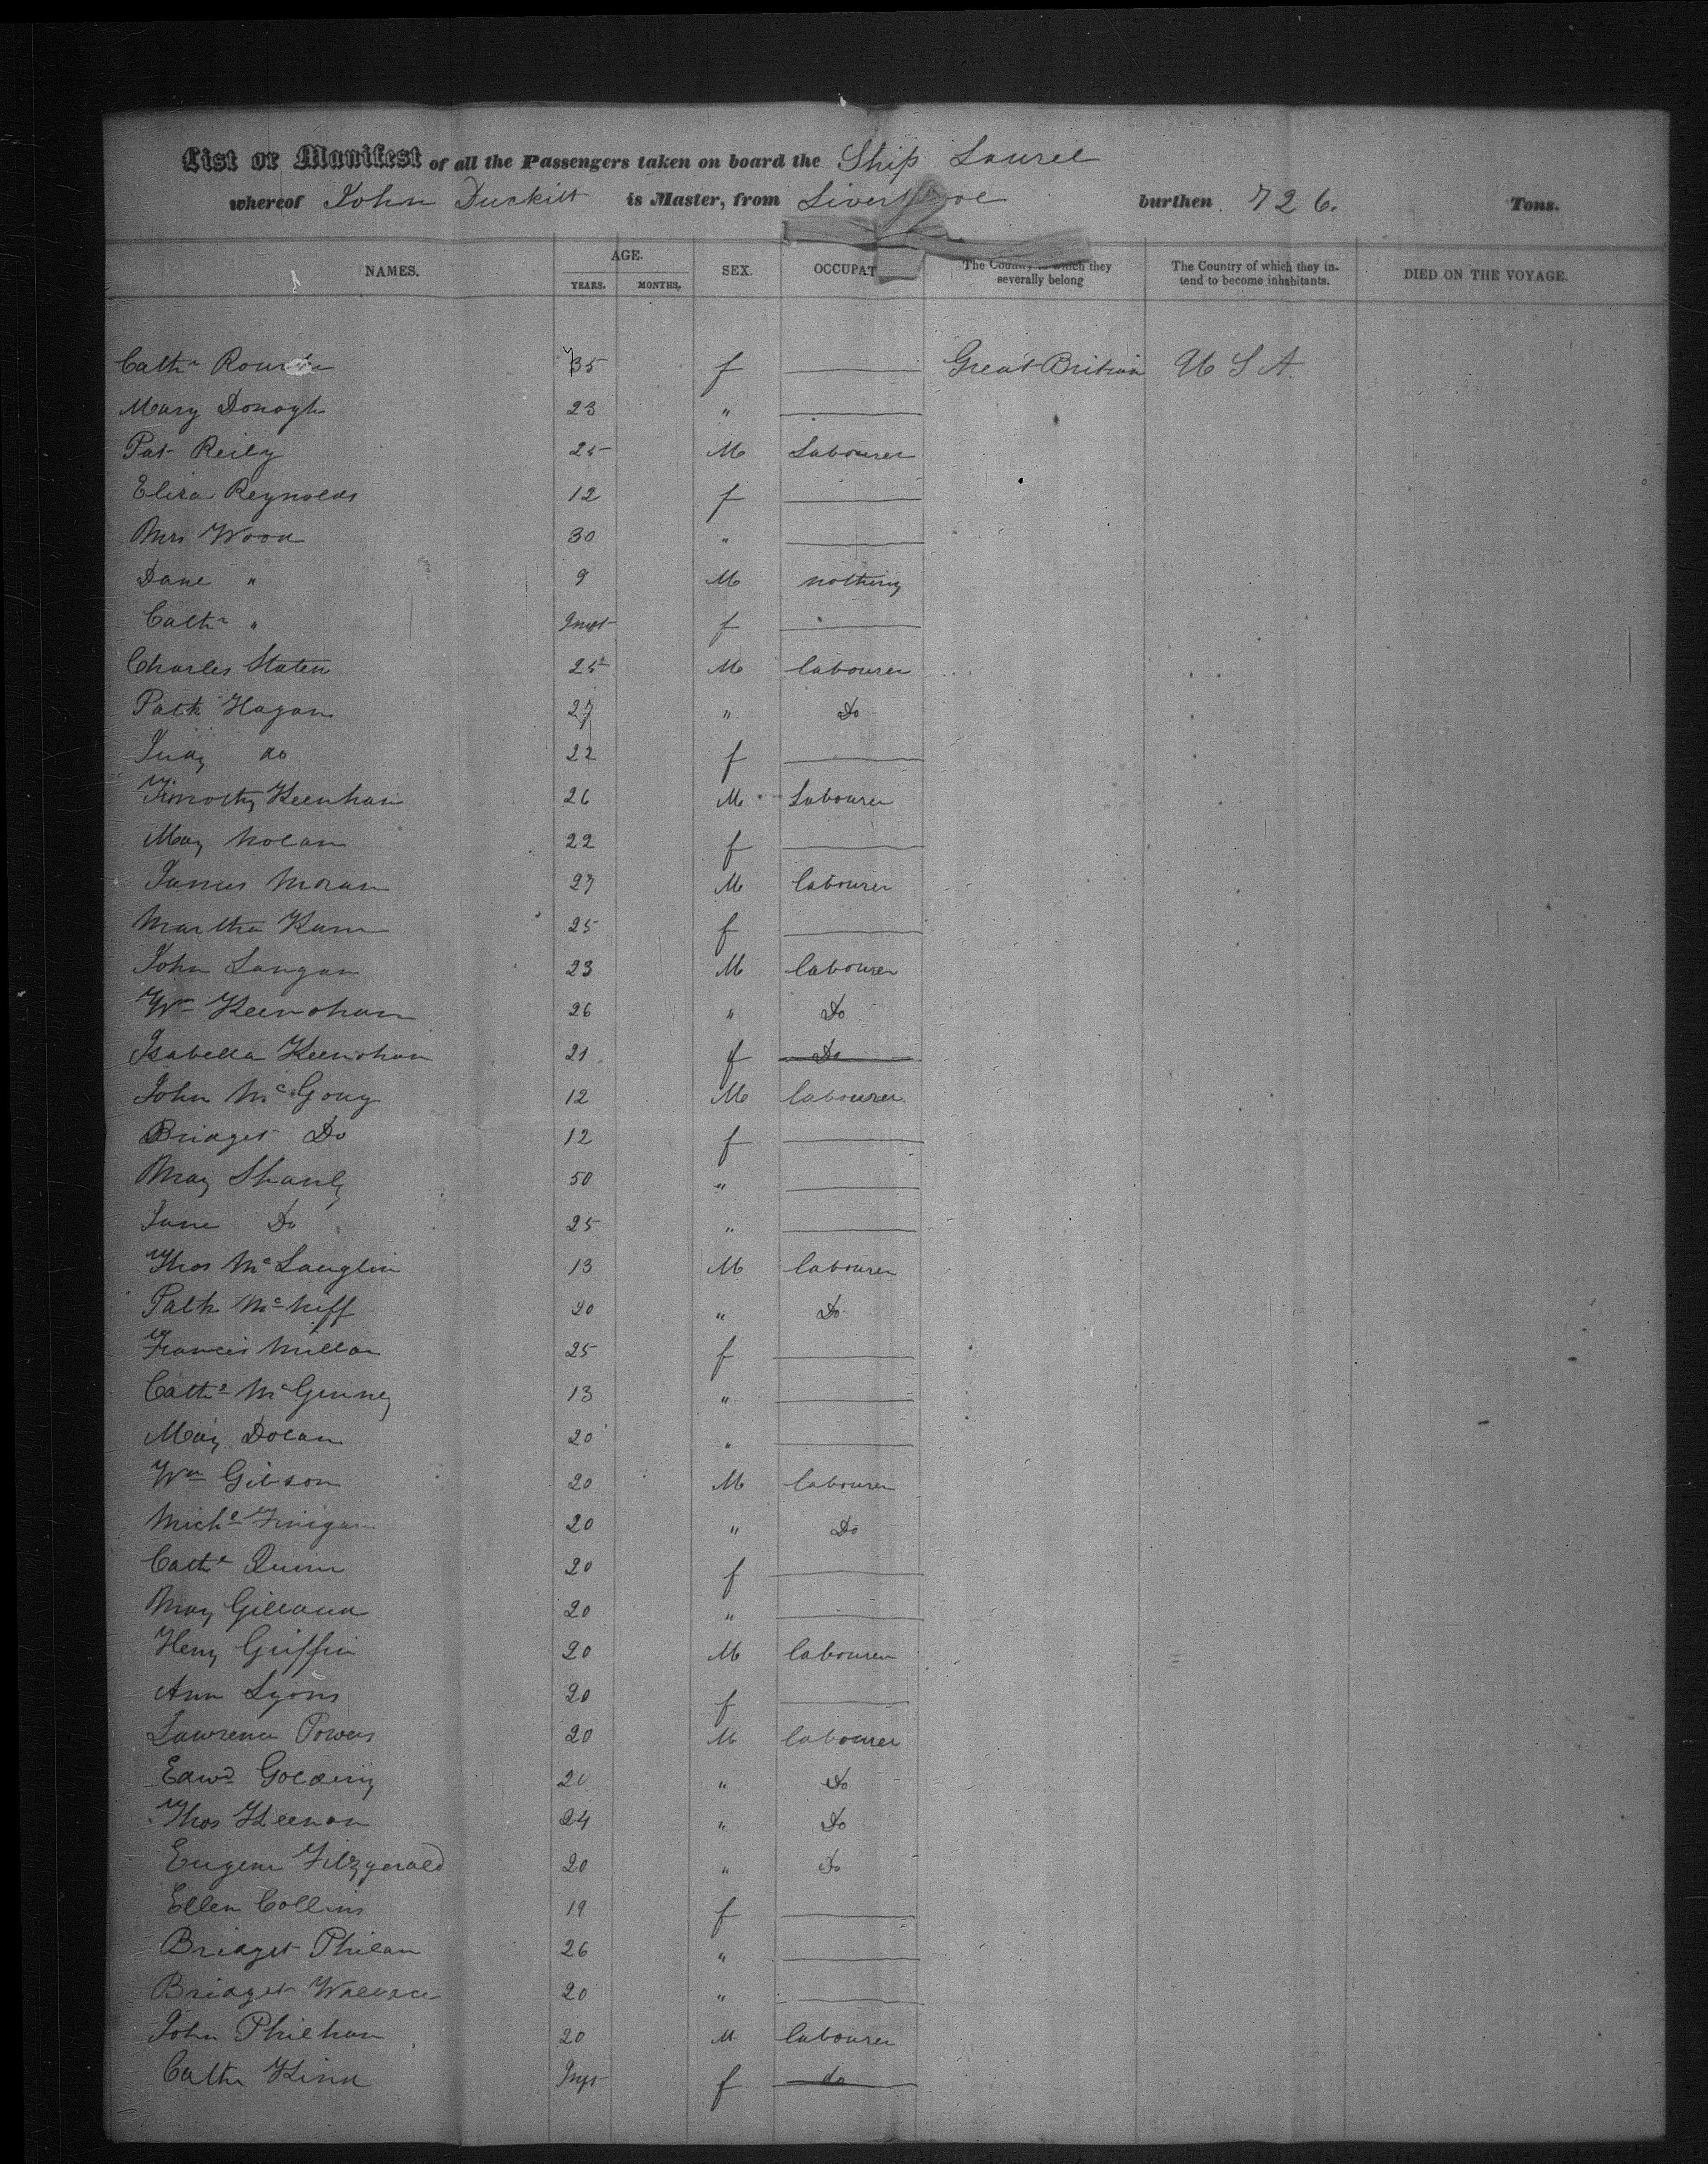 List or Manifest of all the Passengers taken on board the Ship Laurel
whereof John Duckitt is Master, from Liverpool burthen 726. Tons.
NAMES. AGE. YEARS. MONTHS. SEX. OCCUPAT The Country to which they severally belong The Country of which they intend to become inhabitants. DIED ON THE VOYAGE.
Cathe 35 f Great Britain U S A.
Mary Donogh 23 "
Pat Reily 25 M Labourer
Eliza Reynolds 12 f
Mrs Wood 30 "
Dane " 9 M nothing
Cathe " Infst f
Charles Staten 25 M labourer
Patk Hagan 27 " Do
Judy do 22 f
Timothy Keenhan 26 M Labourer
May Nolan 22 f
James Moran 27 M labourer
Martha Kane 25 f
John Langan 23 M labourer
Wm Keenohan 26 " Do
Isabella Keenohan 21 f Do
John McGouy 12 M labourer
Bridget Do 12 f
May Shanly 50 "
Jane Do 25 "
Thos McLauglin 13 M labourer
Patk McNiff 20 " Do
Francis Millan 25 f
Cathe McGinney 13 "
May Dolan 20 "
Wm Gibson 20 M labourer
Miche Finigan 20 " Do
Cathe Quinn 20 f
May Gilland 20 "
Heny Griffin 20 M labourer
Ann Lyons 20 f
Lawrence Powers 20 M labourer
Edwd Golding 20 " Do
Thos Keenan 24 " Do
Eugene Fitzgerald 20 " Do
Ellen Collins 19 f
Bridget Philan 26 "
Bridget Wallace 20 "
John Philhan 20 M labourer
Cathe King f do